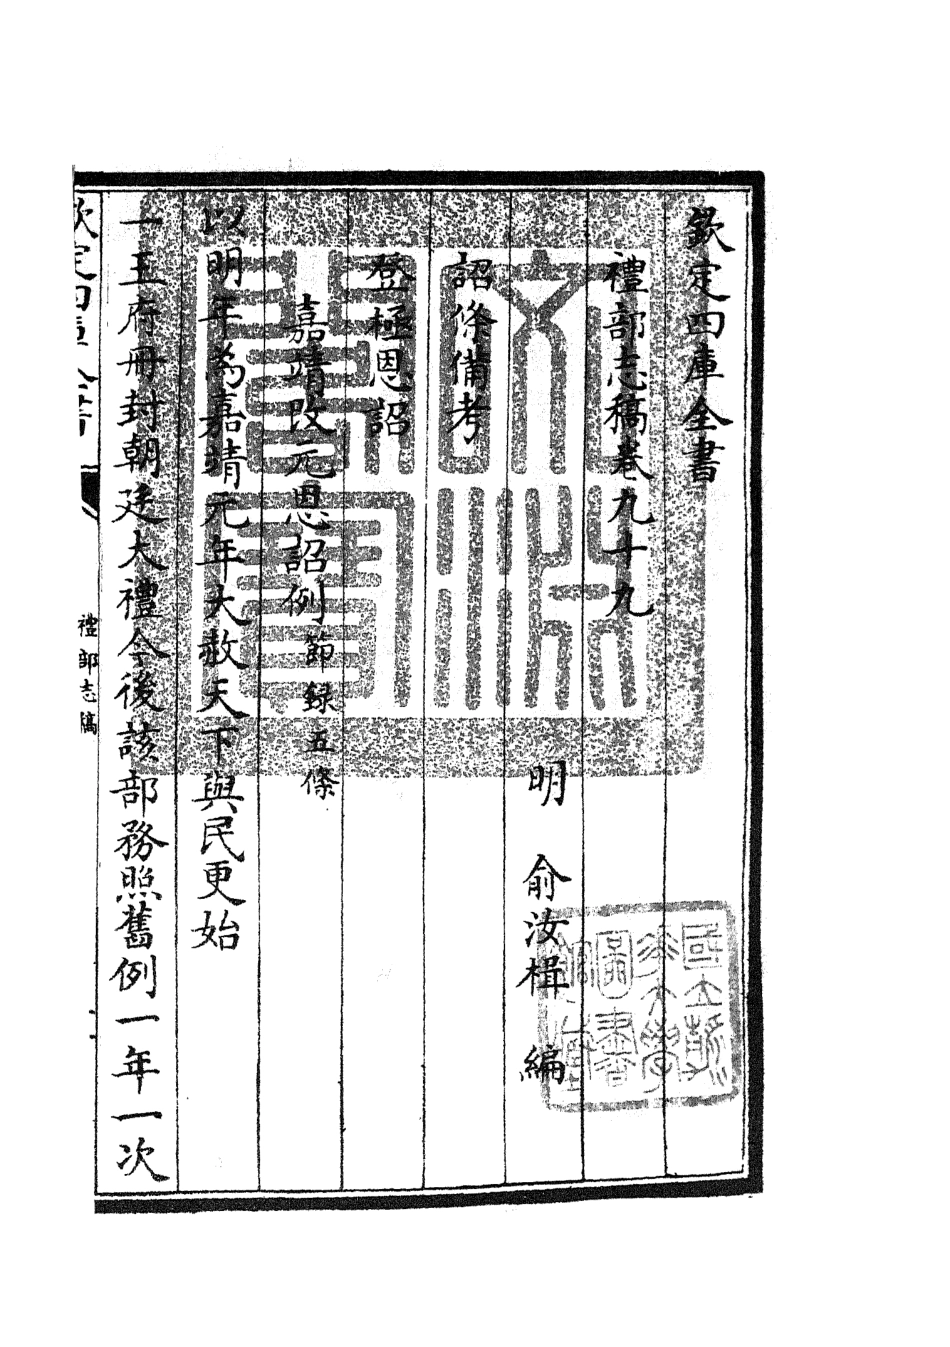 欽定四庫全書
禮部志稿卷九十九
明 俞汝楫 編
詔條備考
登極恩詔
嘉靖改元恩詔例節録五條
以明年為嘉靖元年大赦天下與民更始
一王府冊封朝廷大禮今後該部務照舊例一年一次
禮部志稿